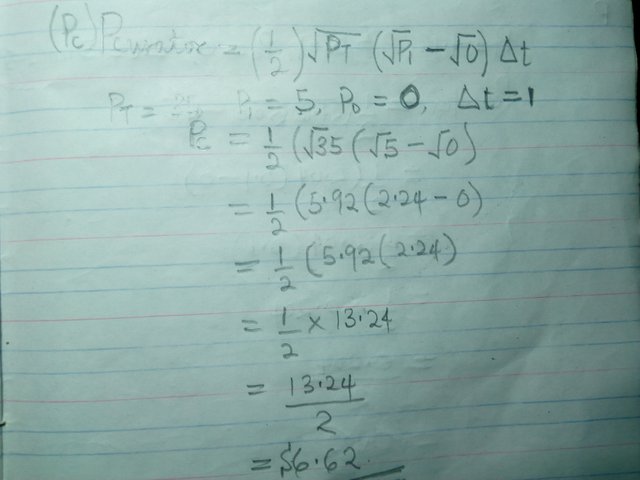 (Pc) Pcwnix = (1/2) √PT (√P1 - √0) Δt
PT = 35, P1 = 5, P0 = 0, Δt = 1
Pc = 1/2 (√35 (√5 - √0)
= 1/2 (5.92 (2.24 - 0)
= 1/2 (5.92 (2.24)
= 1/2 × 13.24
= 13.24/2
= $6.62